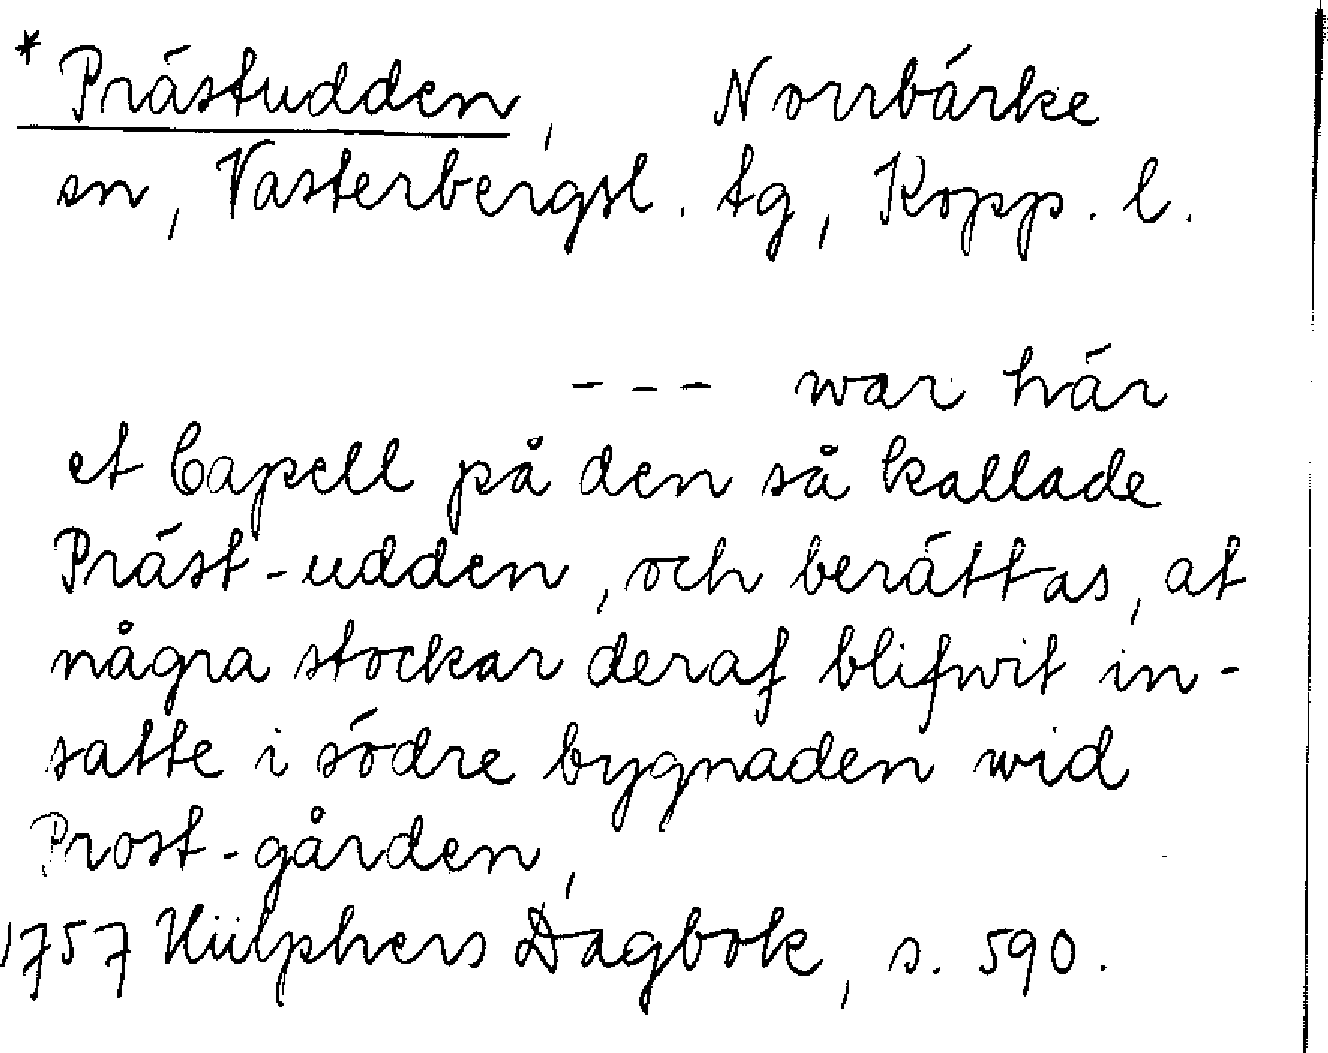 * Prästudden, Norrbärke
sn, Västerbergsl. tg, Kopp. l.
- - - war här
et Capell på den så kallade
Präst-udden, och berättas, at
några stockar deraf blifwit in-
satte i södre bygnaden wid
Prost-gården,
1757 Hülphers Dagbok, s. 590.